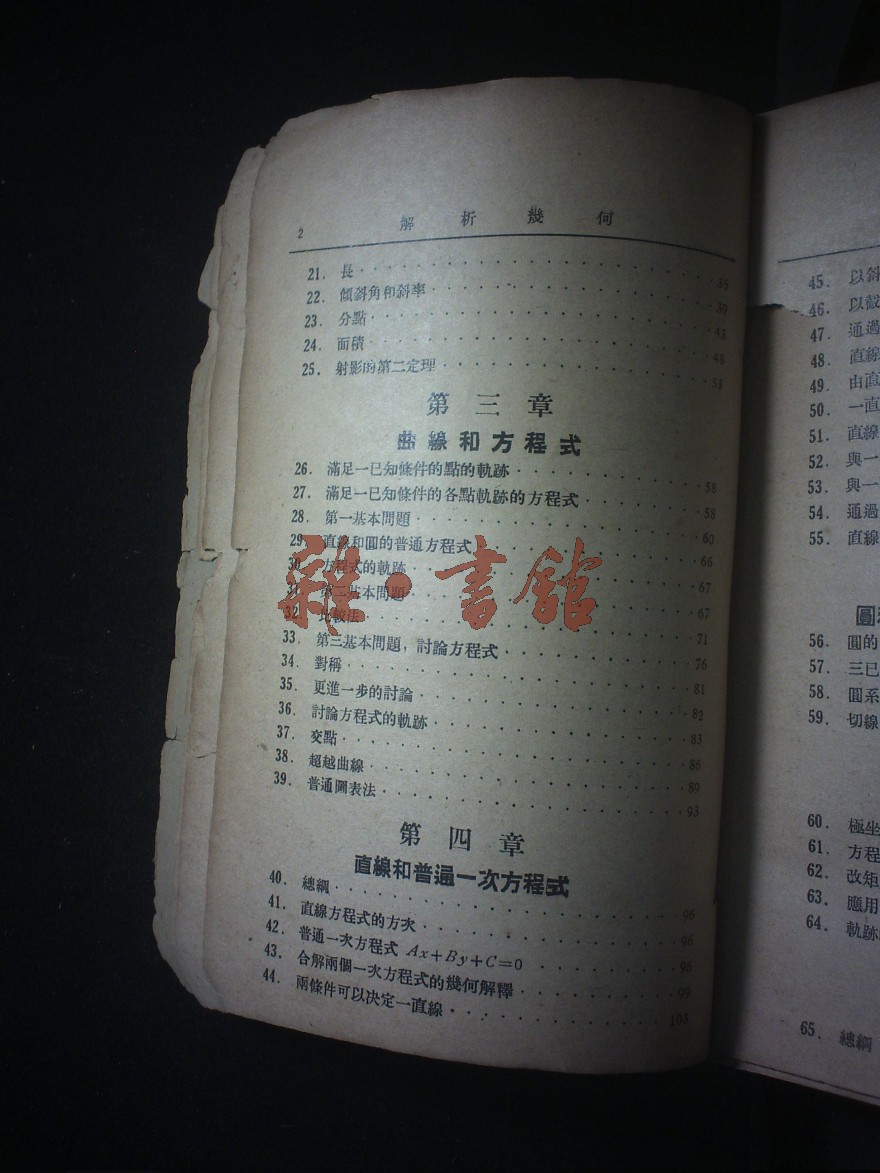 2 解析幾何
21. 長 35
22. 傾斜角和斜率 39
23. 分點 43
24. 面積 48
25. 射影的第二定理 53
第三章
曲線和方程式
26. 滿足一已知條件的點的軌跡 58
27. 滿足一已知條件的各點軌跡的方程式 58
28. 第一基本問題 60
29. 直線和圓的普通方程式 66
30. 方程式的軌跡 67
31. 第二基本問題 67
32. 比較法 71
33. 第三基本問題，討論方程式 76
34. 對稱 81
35. 更進一步的討論 82
36. 討論方程式的軌跡 83
37. 交點 86
38. 超越曲線 89
39. 普通圖表法 93
第四章
直線和普通一次方程式
40. 總綱 96
41. 直線方程式的方次 96
42. 普通一次方程式 Ax+By+C=0 96
43. 合解兩個一次方程式的幾何解釋 99
44. 兩條件可以决定一直線 103
雜·書館
45. 以斜
46. 以截
47. 通過
48. 直線
49. 由直
50. 一直
51. 直線
52. 與一
53. 與一
54. 通過
55. 直線
圓
56. 圓的
57. 三已
58. 圓系
59. 切線
60. 極坐
61. 方程
62. 改矩
63. 應用
64. 軌跡
65. 總綱